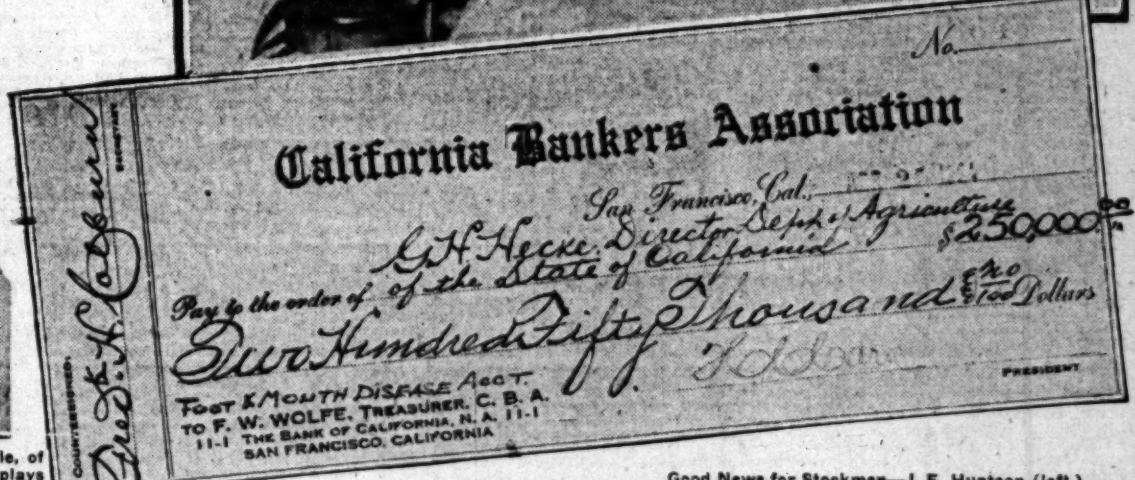 No.
California Bankers Association
San Francisco, Cal.,
G H Hecke. Director Dept. of Agriculture
Pay to the order of of the State of California $250,000.00
Two Hundred Fifty Thousand & no/100 Dollars
FOOT & MOUTH DISEASE ACCT.
TO F. W. WOLFE, TREASURER, C. B. A.
11-1 THE BANK OF CALIFORNIA, N. A. 11-1
SAN FRANCISCO, CALIFORNIA
PRESIDENT
COUNTERSIGNED:
Fred. H. Colburn
SECRETARY
le, of
plays
Good News for Stockmen—J. E. Huntson (left.)